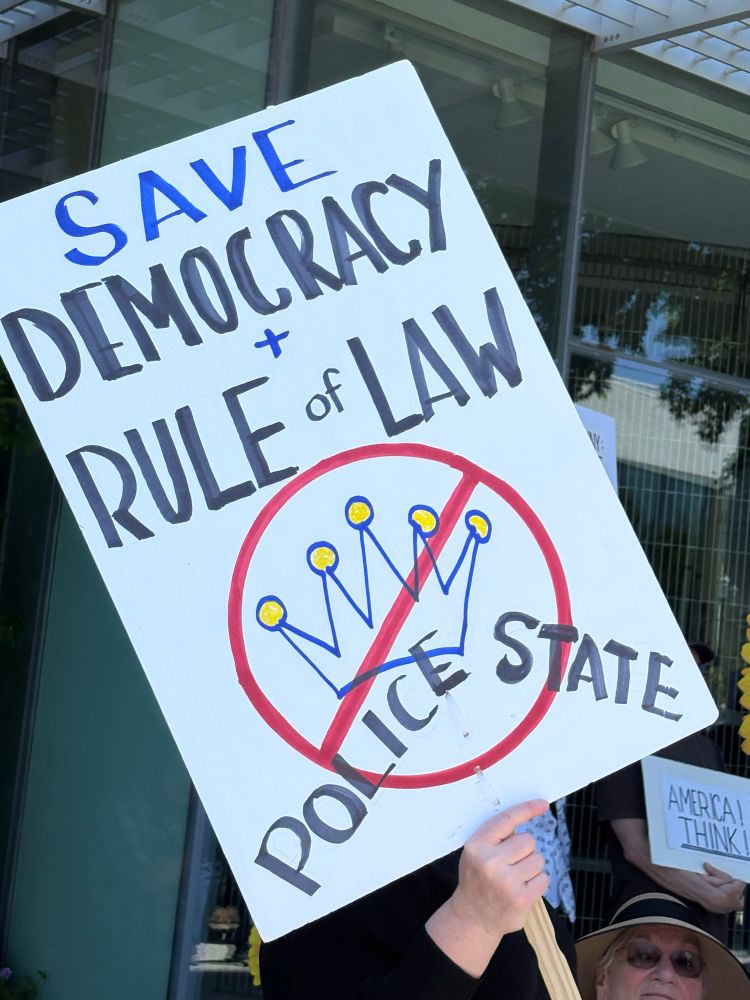 SAVE
DEMOCRACY
+
RULE of LAW
POLICE STATE
AMERICA!
THINK!